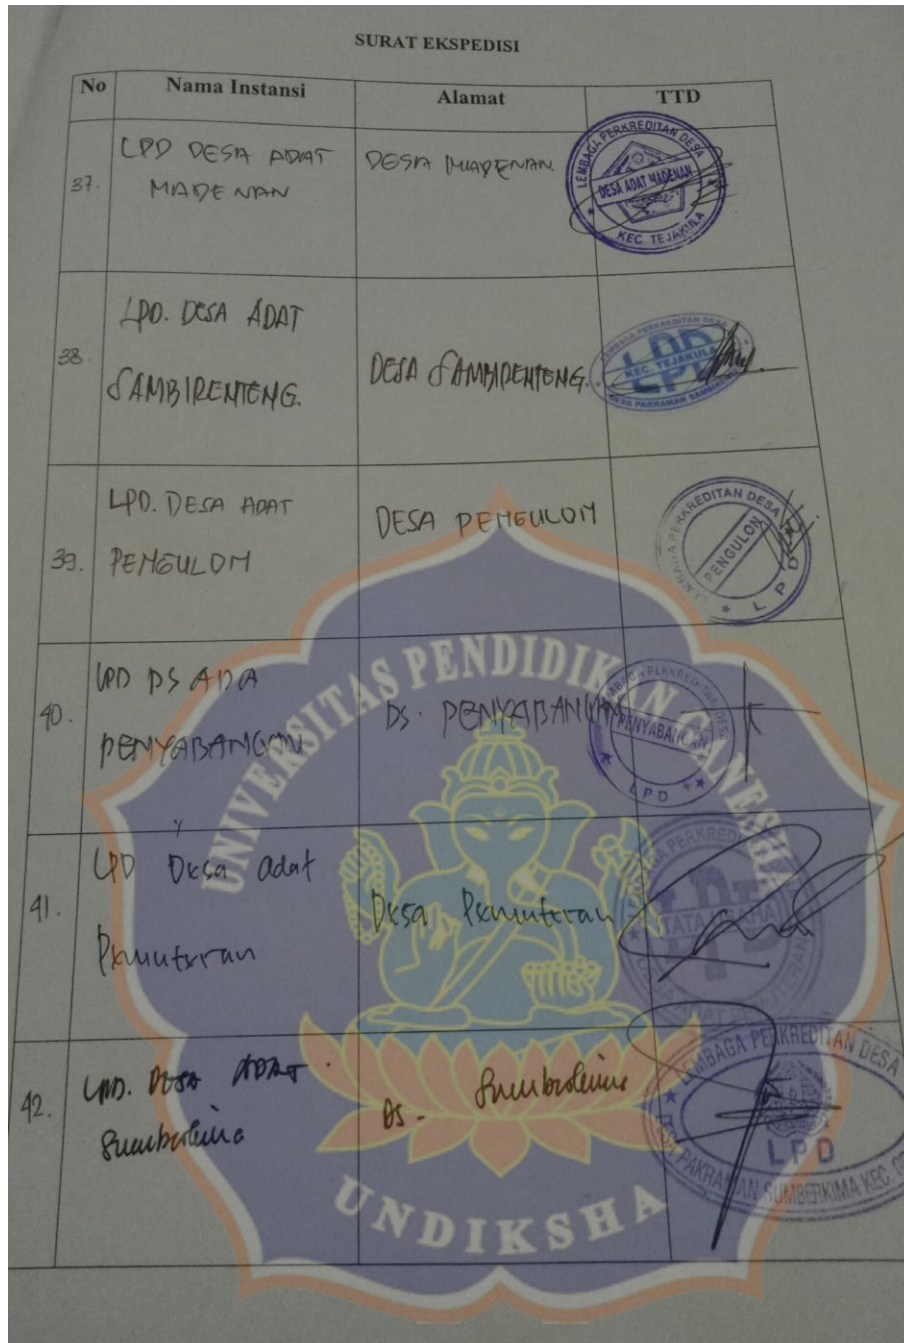 SURAT EKSPEDISI
No Nama Instansi Alamat TTD
37. LPD DESA ADAT MADENAN DESA MADENAN
LEMBAGA PERKREDITAN DESA
DESA ADAT MADENAN
KEC. TEJAKULA
38. LPD. DESA ADAT SAMBIRENTENG. DESA SAMBIRENTENG.
LEMBAGA PERKREDITAN DESA
LPD
KEC. TEJAKULA
DESA PAKRAMAN
39. LPD. DESA ADAT PENGULON DESA PENGULON
LEMBAGA PERKREDITAN DESA
PENGULON
LPD
40. LPD DS ADA PENYABANGAN DS. PENYABANGAN
LEMBAGA PERKREDITAN DESA
PENYABANGAN
LPD
41. LPD Desa adat Pemuteran Desa Pemuteran
LPD
TATA USAHA
42. LPD. DESA ADAT Sumberkima DS. Sumberkima
LEMBAGA PERKREDITAN DESA
LPD
PAKRAMAN SUMBERKIMA KEC.
UNIVERSITAS PENDIDIKAN GANESHA
UNDIKSHA